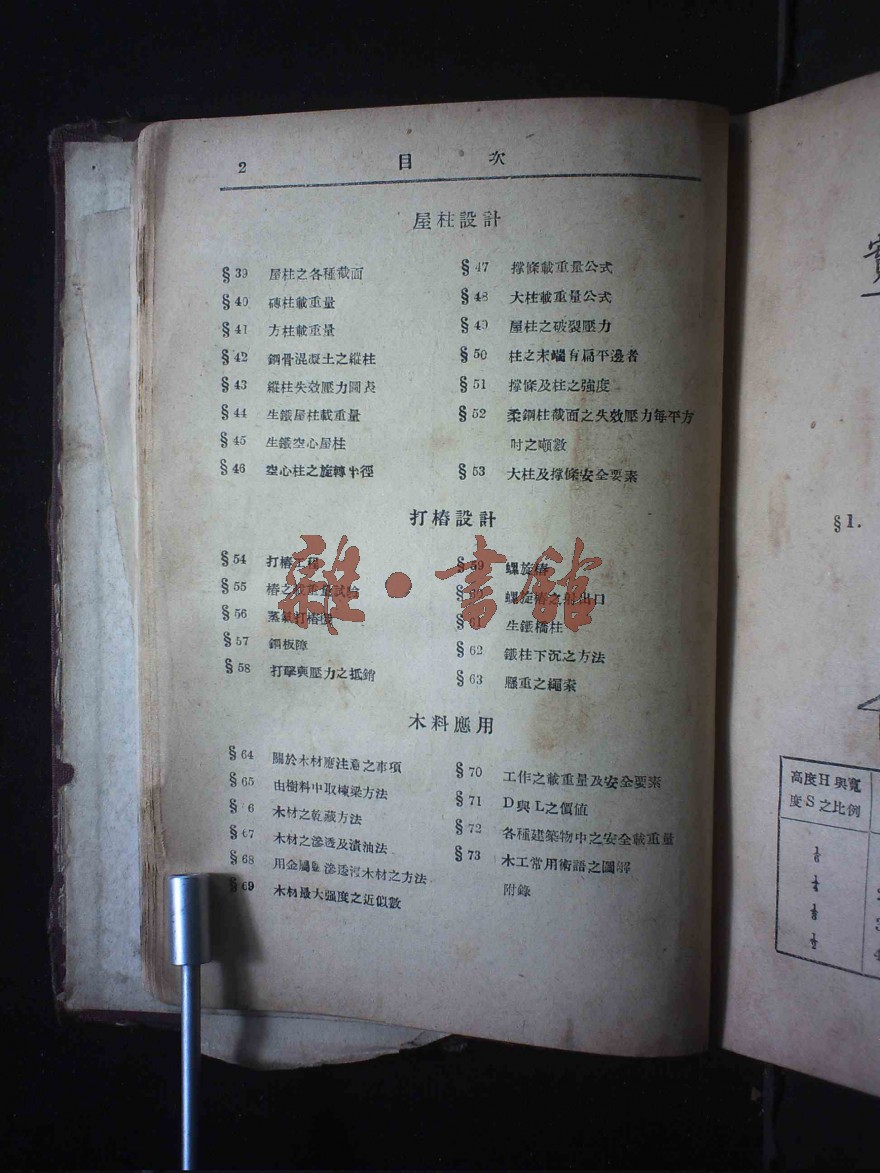 2
目 次
屋柱設計
§39 屋柱之各種截面
§40 磚柱載重量
§41 方柱載重量
§42 鋼骨混凝土之縱柱
§43 縱柱失效壓力圖表
§44 生鐵屋柱載重量
§45 生鐵空心屋柱
§46 空心柱之旋轉半徑
§47 撑條載重量公式
§48 大柱載重量公式
§49 屋柱之破裂壓力
§50 柱之末端有扁平邊者
§51 撑條及柱之強度
§52 柔鋼柱截面之失效壓力每平方
吋之噸數
§53 大柱及撑條安全要素
打樁設計
§54 打樁工程
§55 樁之載重量試驗
§56 蒸氣打樁機
§57 鋼板障
§58 打擊與壓力之抵銷
§59 螺旋樁
§60 螺旋樁之射出口
§61 生鐵橋柱
§62 鐵柱下沉之方法
§63 懸重之繩索
木料應用
§64 關於木材應注意之事項
§65 由樹料中取棟梁方法
§66 木材之乾藏方法
§67 木材之滲透及漬油法
§68 用金屬鹽滲透浸木材之方法
§69 木材最大强度之近似數
§70 工作之載重量及安全要素
§71 D與L之價值
§72 各種建築物中之安全載重量
§73 木工常用術語之圖解
附錄
雜·書舘
§1.
高度H與寬
度S之比例